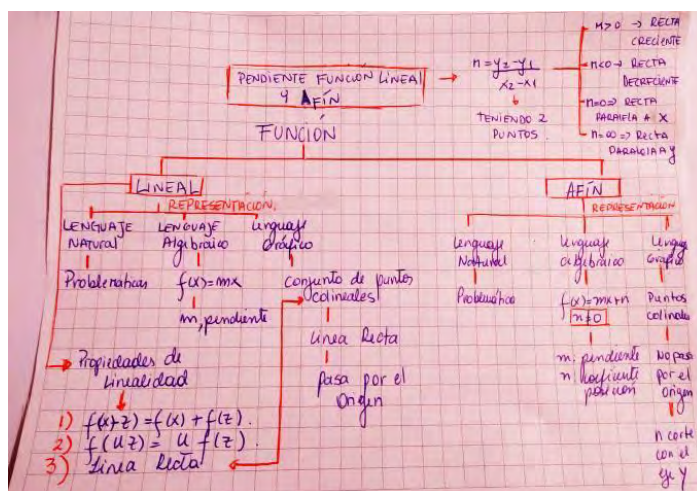 PENDIENTE FUNCION LINEAL
Y AFÍN
n = y2-y1
x2-x1
TENIENDO 2
PUNTOS.
M>0 → RECTA
CRECIENTE
n<0 → RECTA
DECRECIENTE
n=0 => RECTA
PARALELA A X
n=∞ => RECTA
PARALELA A Y
FUNCIÓN
LINEAL
REPRESENTACIÓN.
LENGUAJE
NATURAL
Problemáticas
LENGUAJE
Algebraico
f(x)=mx
m, pendiente
Lenguaje
Gráfico
conjunto de puntos
colineales
Linea Recta
Pasa por el
Origen
Propiedades de
Linealidad
1) f(x+z) = f(x) + f(z).
2) f(uz) = u f(z).
3) Linea Recta
AFÍN
REPRESENTACIÓN
Lenguaje
Natural
Problemático
Lenguaje
algebraico
f(x)=mx+n
n≠0
m: pendiente
n: coeficiente
posición
Lengua
Grafico
Puntos
colineales
No pasa
por el
origen
n corte
con el
eje Y